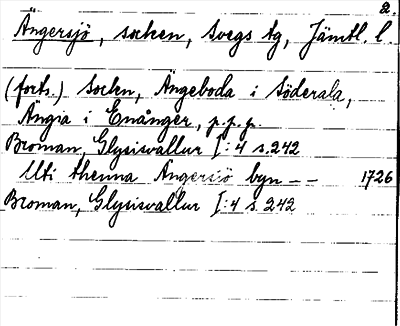 2.
Ängersjö, socken, Svegs tg, Jämtl. l.
(forts.) socken, Ängeboda i Söderala,
Ängia i Enånger, p.p.p.
Broman, Glysisvallur I:4 s.242
Uti thenna Ängersiö byn – – 1726
Broman, Glysisvallur I:4 s.242